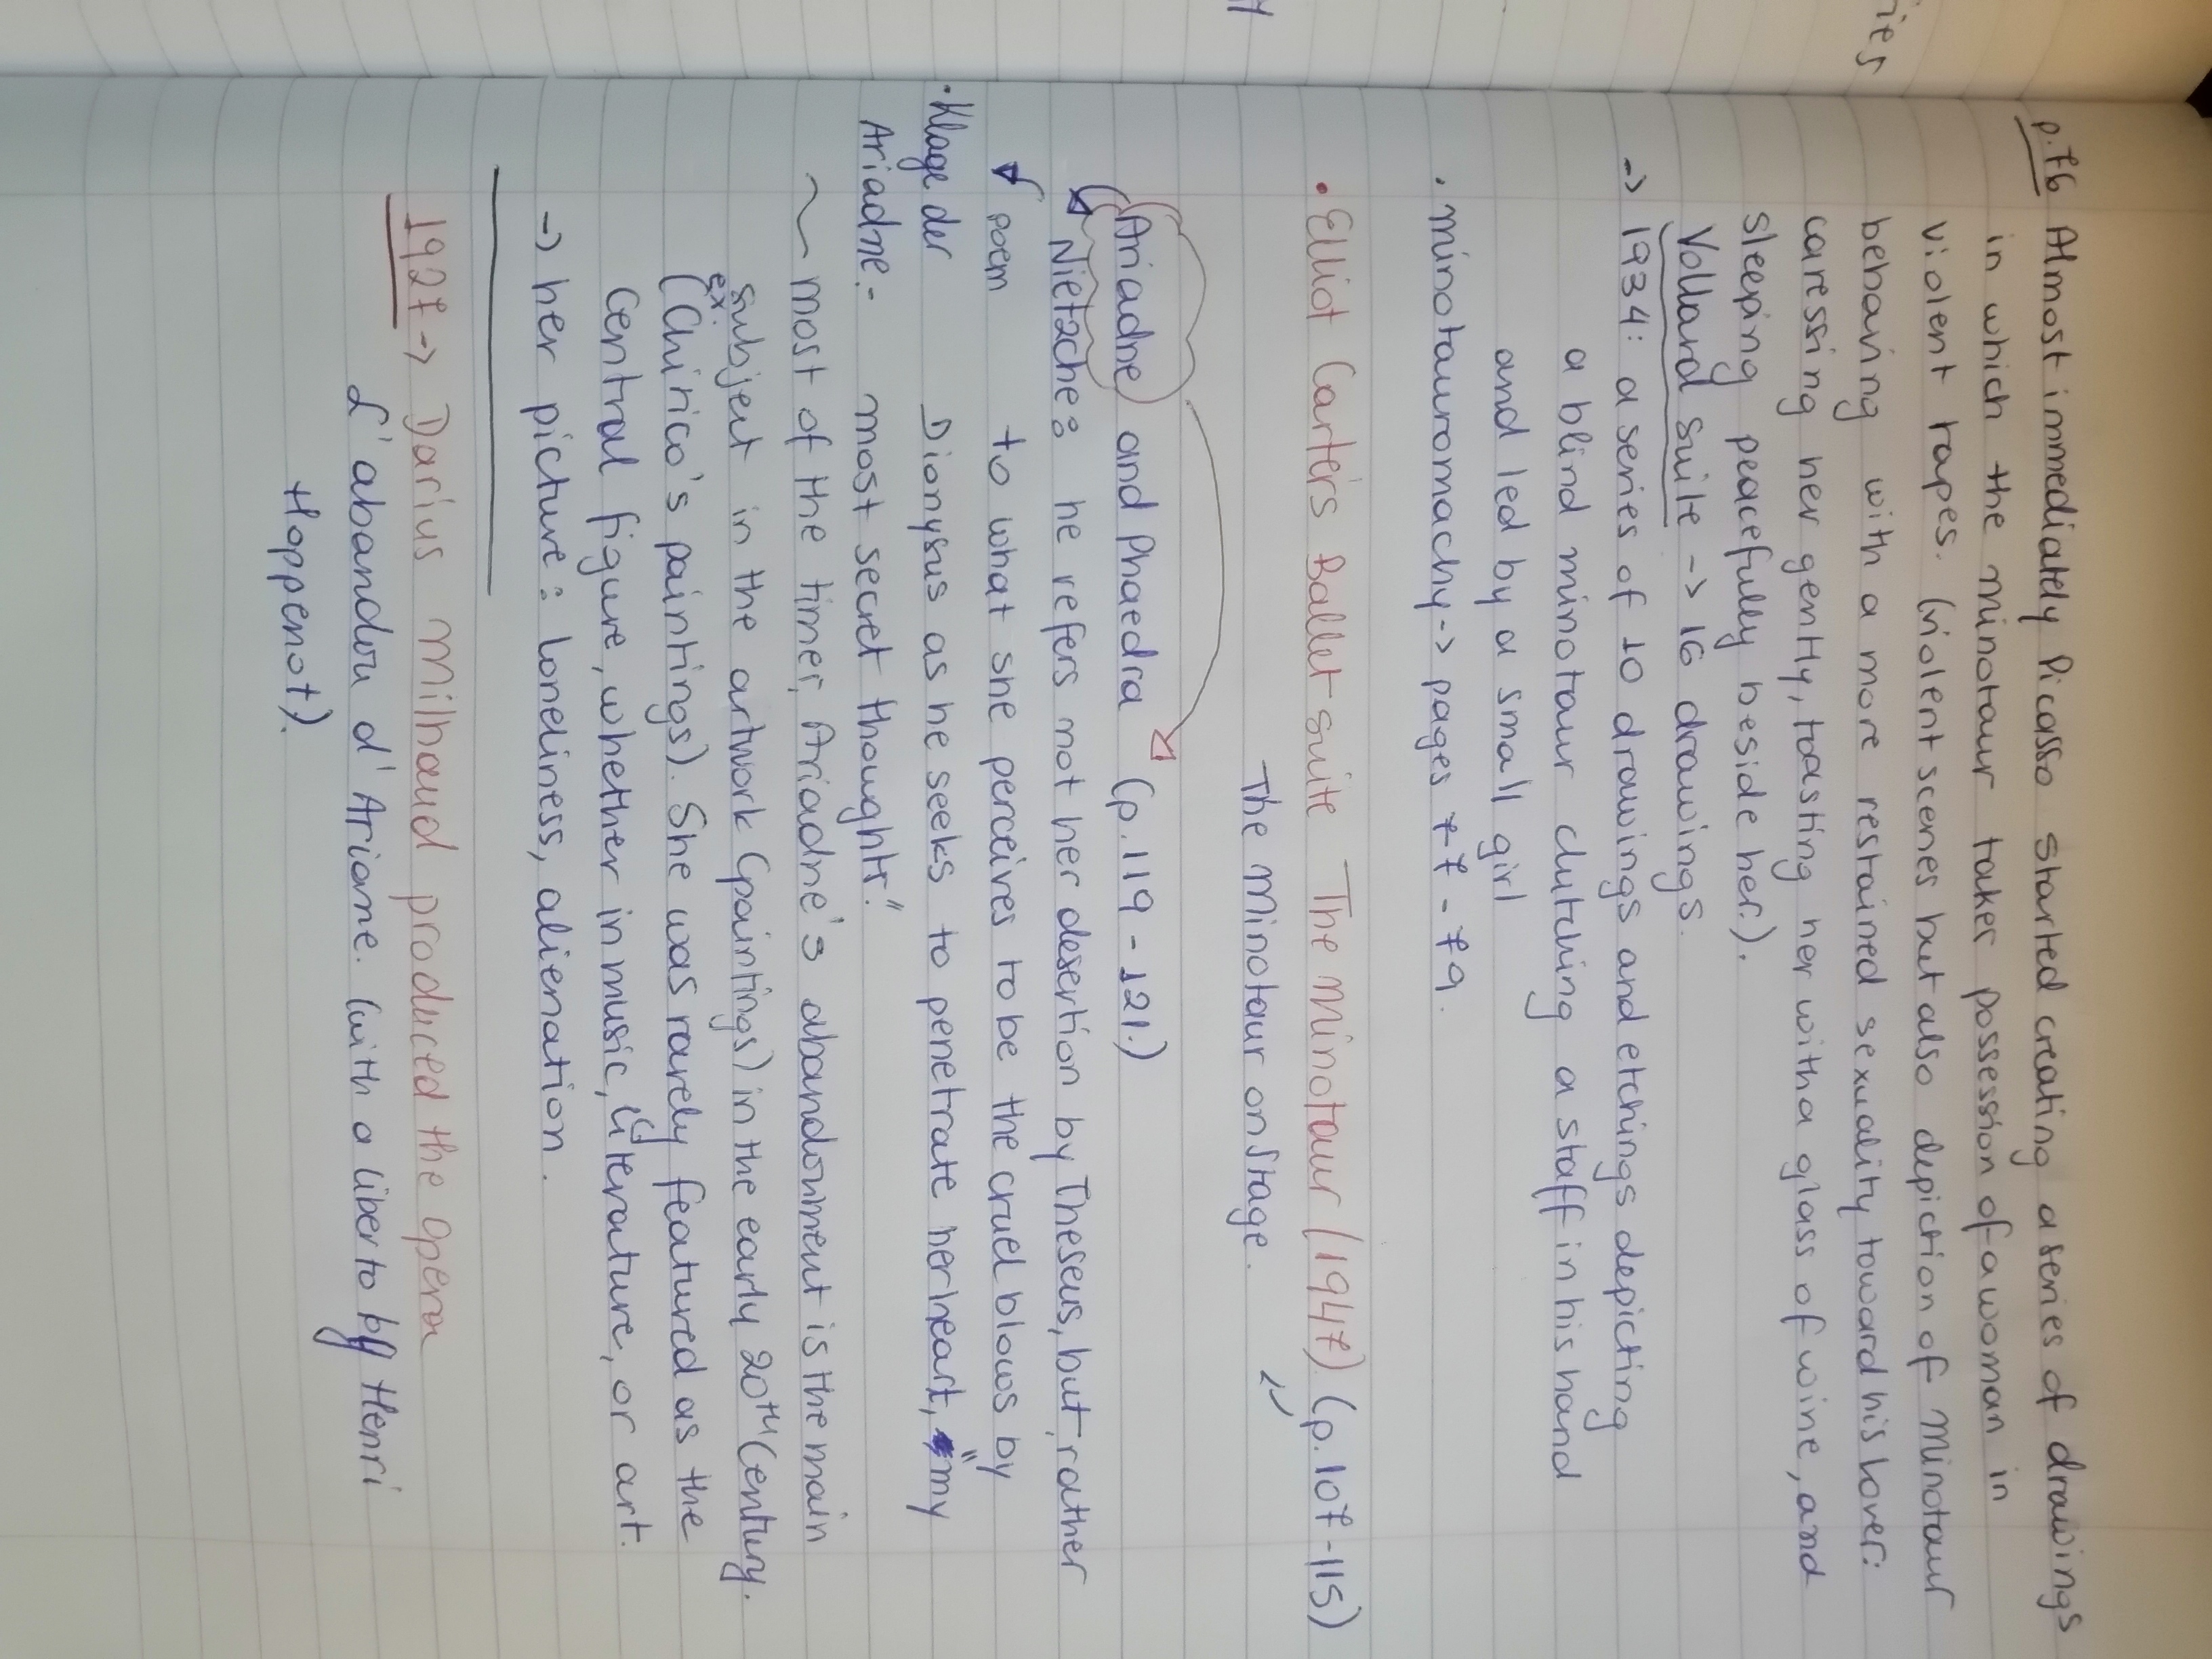 p.76 Almost immediately Picasso started creating a series of drawings
in which the minotaur takes possession of a woman in
violent rapes. (violent scenes but also depiction of minotaur
behaving with a more restrained sexuality toward his lover:
caressing her gently, toasting her with a glass of wine, and
sleeping peacefully beside her.).
Vollard suite -> 16 drawings.
-> 1934: a series of 10 drawings and etchings depicting
a blind minotaur clutching a staff in his hand
and led by a small girl
• minotauromachy -> pages 77-79.
• Elliot Carter's Ballet suite The Minotaur (1947). (p.107-115)
The Minotaur on stage.
Ariadne and Phaedra (p.119-121.)
Nietzche: he refers not her desertion by Theseus, but rather
poem to what she perceives to be the cruel blows by
• Klage der Dionysus as he seeks to penetrate her heart, "my
Ariadne:- most secret thoughts."
~ most of the times, Ariadne's abandonment is the main
subject in the artwork (paintings) in the early 20th Century.
ex.
(Chirico's paintings). She was rarely featured as the
central figure, whether in music, literature, or art.
-> her picture: loneliness, alienation.
1927 -> Darius Milhaud produced the opera
L'abandon d'Ariane. (with a liberto by Henri
Hoppenot).
ies